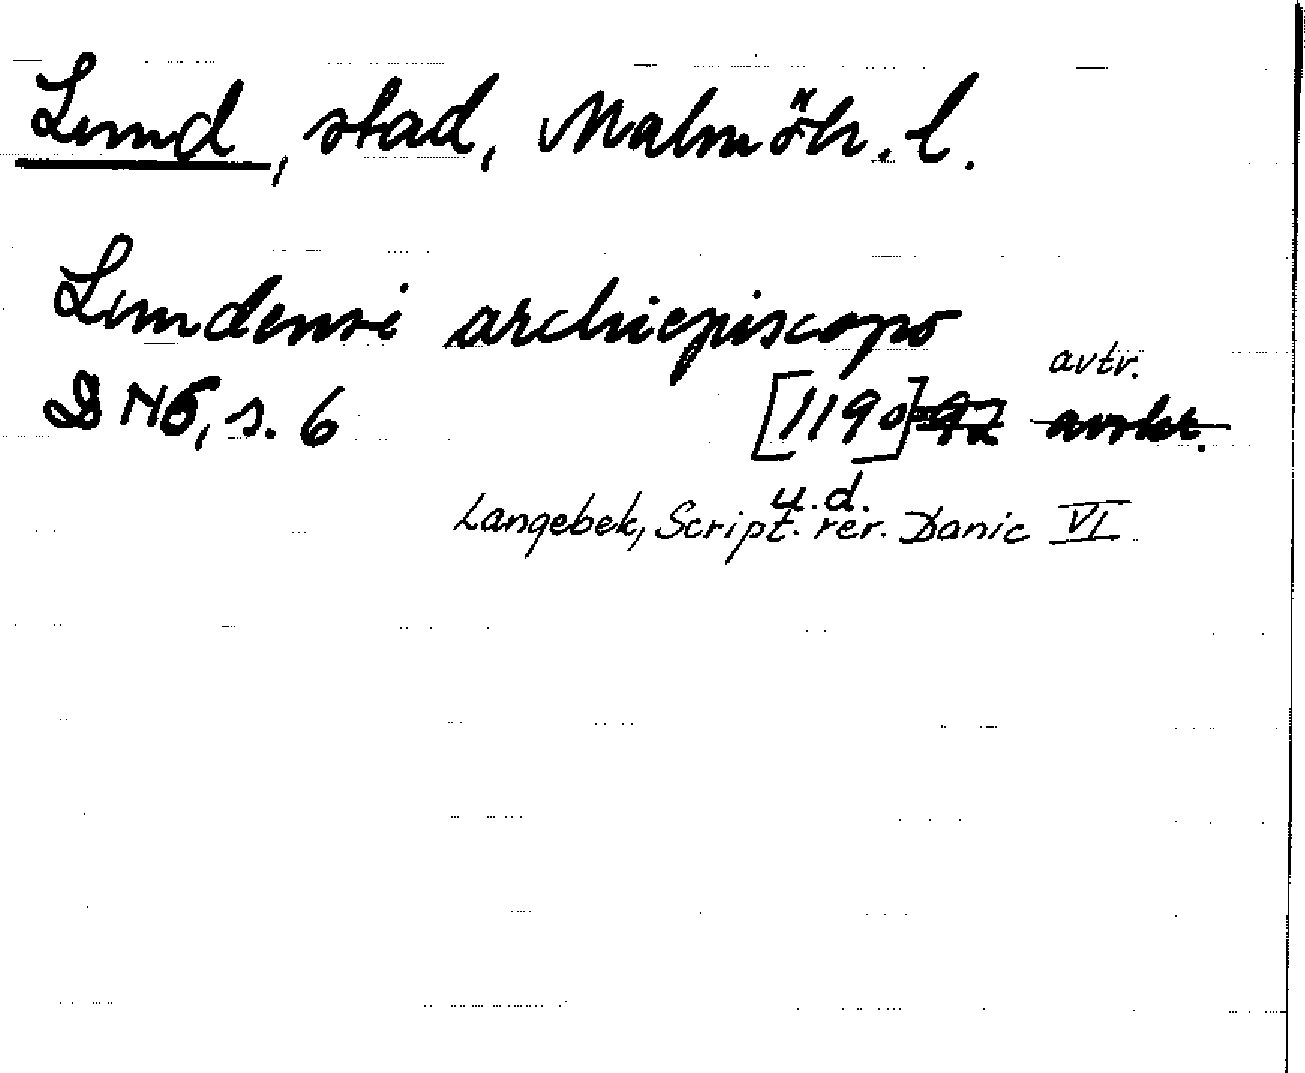 Lund, stad, Malmöh. l.
Lundensi archiepiscopo
avtr.
DN6, s. 6 [1190]-92 avskr.
u.d.
Langebek, Script. rer. Danic VI